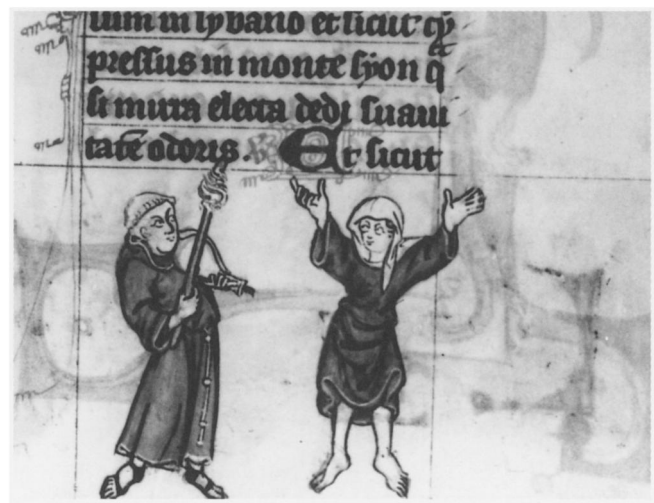 sum in lybano et sicut cy
pressus in monte syon q
si mirra electa dedi suaui
tatē odoris. Et sicut